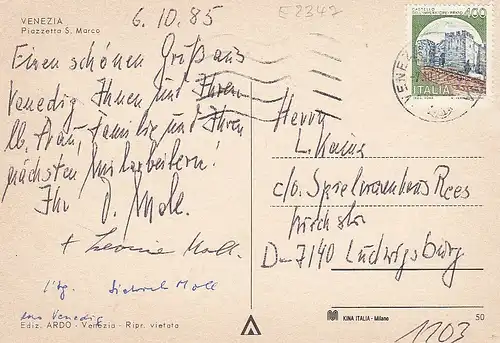 VENEZIA
Piazzetta S. Marco
6.10.85
E2347
Einen schönen Gruß aus
Venedig Ihnen und Ihrer
lb. Frau, Familie und Ihren
nächsten Mitarbeitern!
Ihr D. Moll.
+ Leonie Moll.
Dietrich Moll
aus Venedig
Ediz. ARDO - Venezia - Ripr. vietata
CASTELLO
400
ITALIA
VENEZ
Herrn
L. Kainz
c/o. Spielwarenhaus Rees
Kirchstr
D-7140 Ludwigsburg
KINA ITALIA - Milano
50
1203